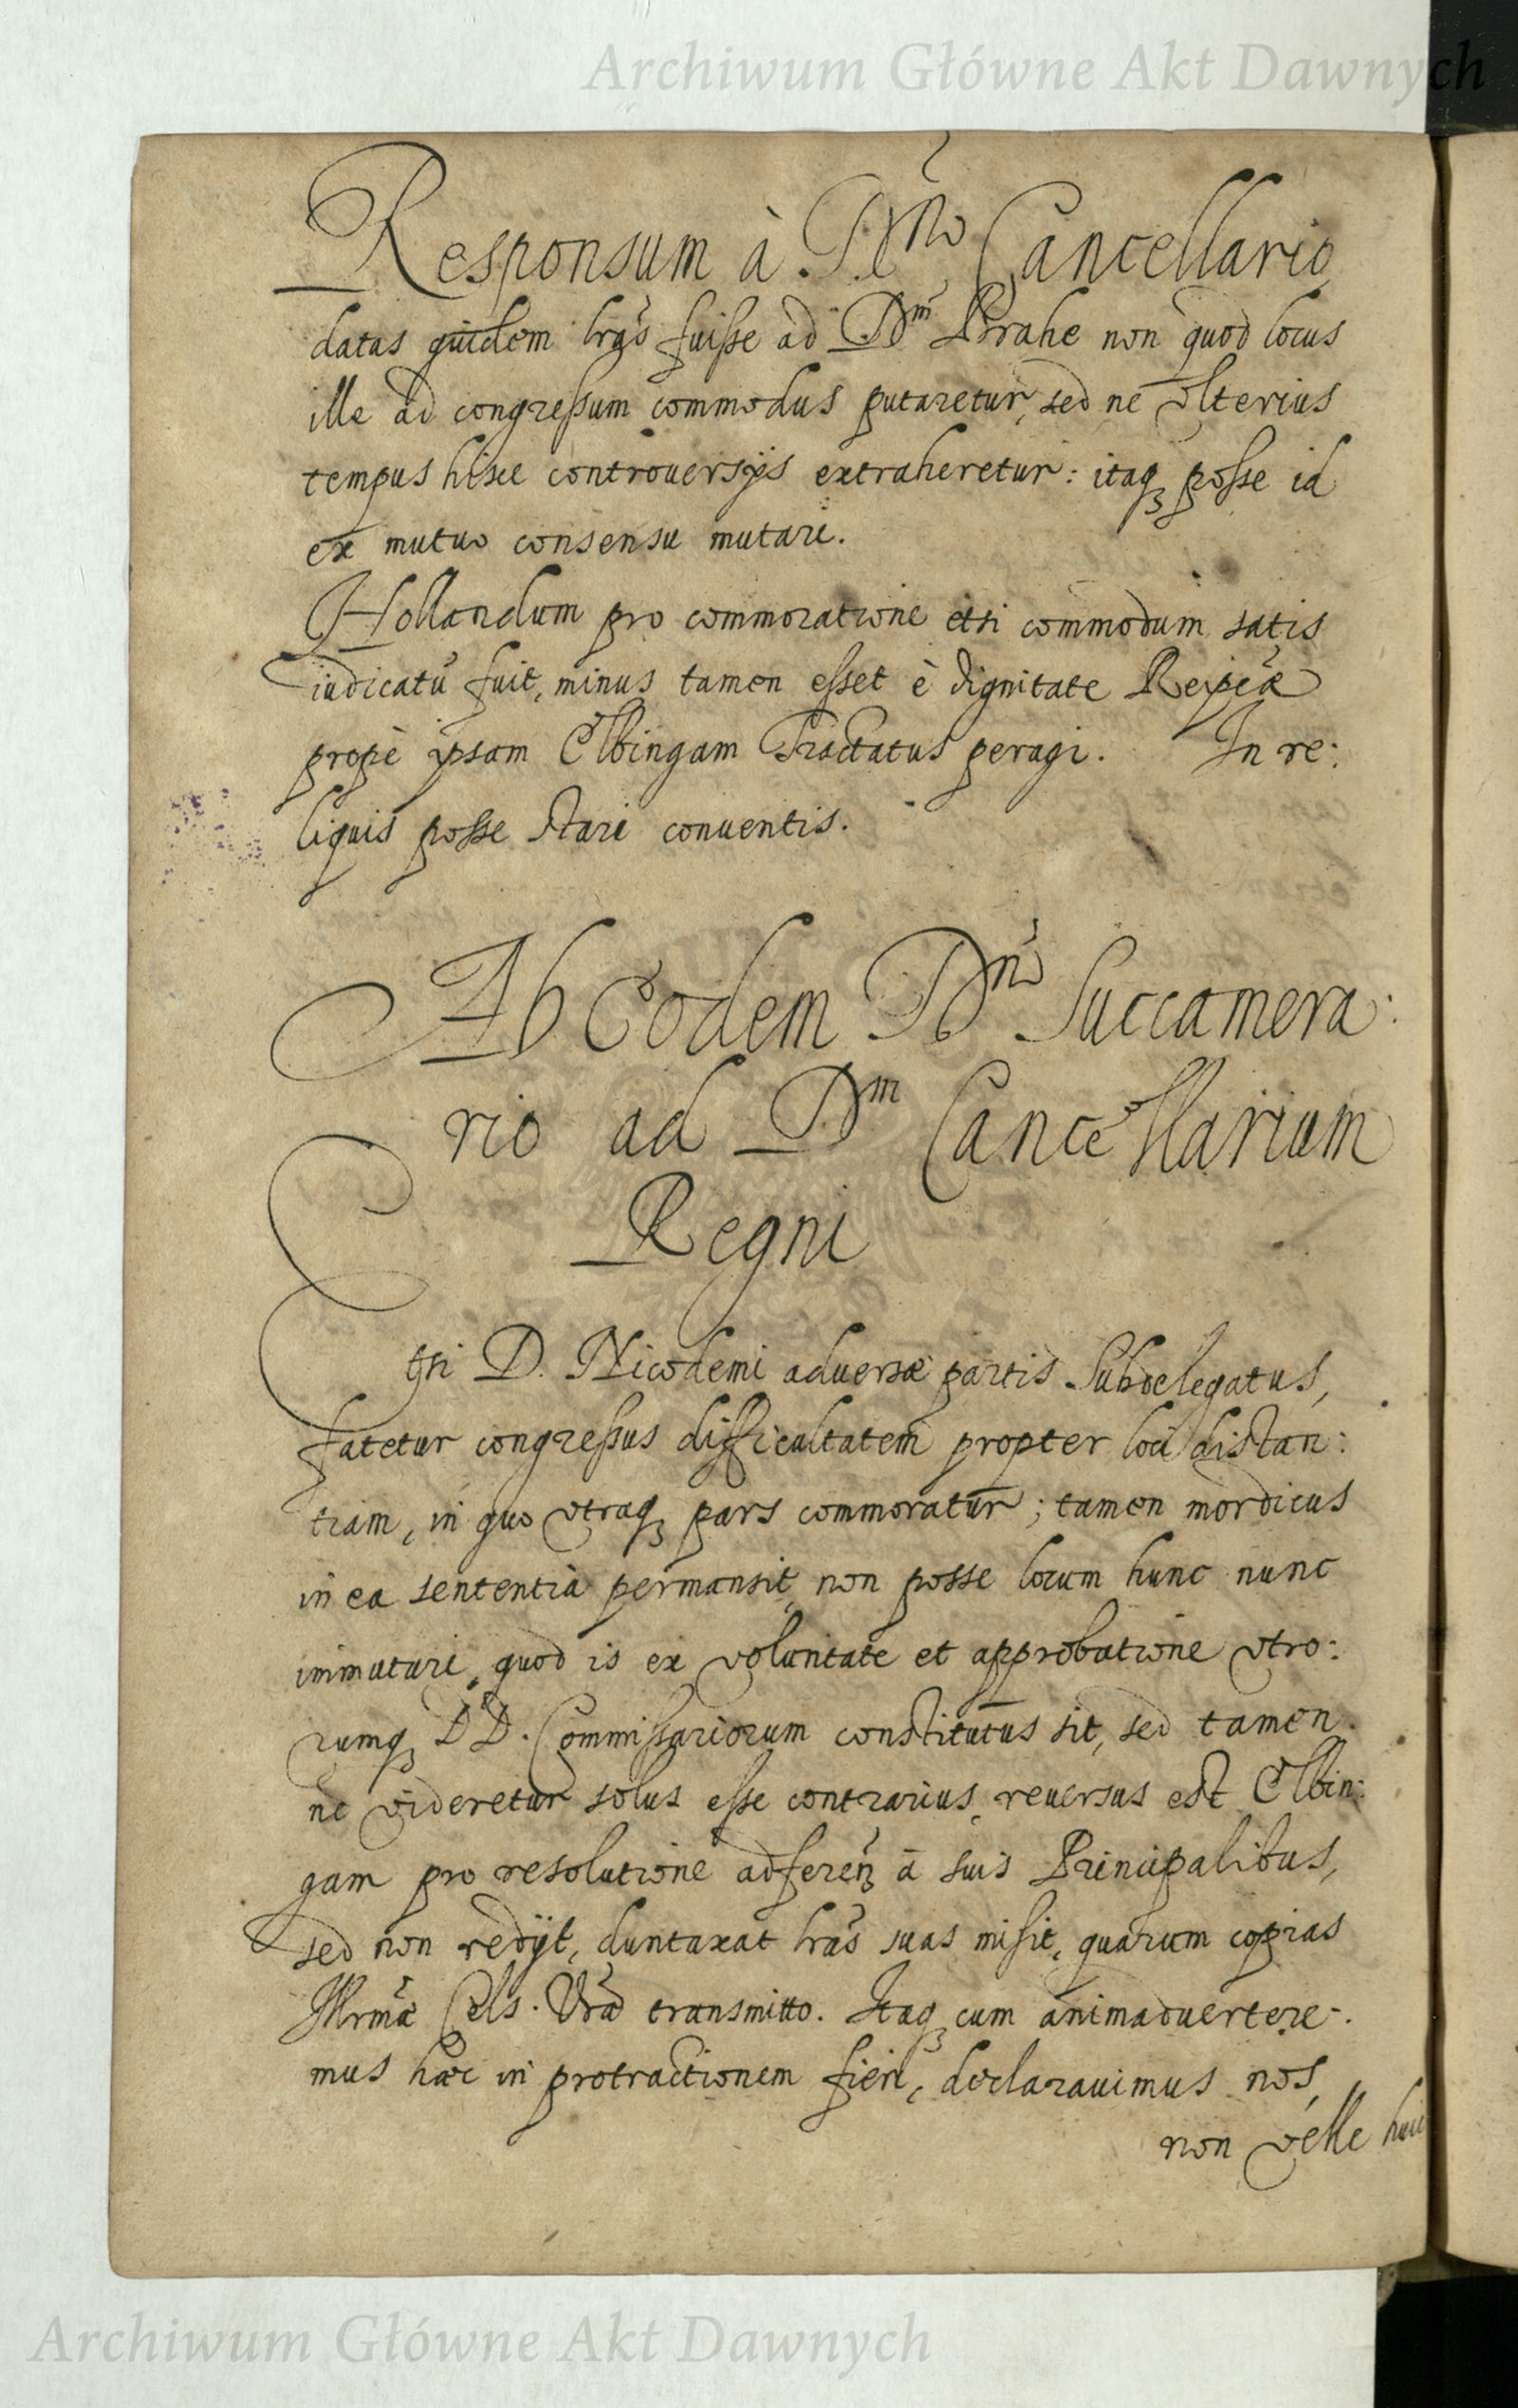 Archiwum Główne Akt Dawnych
Responsum à Dno Cancellario
datas quidem lras fuisse ad Dm Brahe non quod locus
ille ad congressum commodus putaretur, sed ne vlterius
tempus hisce controversijs extraheretur: itaq posse id
ex mutuo consensu mutari.
Hollandum pro commoratione etsi commodum satis
iudicatũ fuit, minus tamen esset è dignitate Reipcæ
propè ipsam Elbingam Tractatus peragi. In re:
liquis posse stari conuentis.
Ab Eodem Dno Succamera:
rio ad Dm Cancellarium
Regni
Etsi D. Nicodemi aduersæ partis Subdelegatus,
fatetur congressus difficultatem propter loci distan:
tiam, in quo vtraq pars commoratur; tamen mordicus
in ea sententia permansit, non posse locum hunc nunc
immutari, quod is ex voluntate et approbatione vtro:
rumq DD. Commissariorum constitutus sit, sed tamen
ne videretur solus esse contrarius, reuersus est Elbin:
gam pro resolutione adferen à suis Principalibus,
sed non redijt, duntaxat lras suas misit, quarum copias
Illrmæ Cels. Vræ transmitto. Itaq cum animaduertere:
mus hæc in protractionem fieri, declarauimus nos,
non velle huic
Archiwum Główne Akt Dawnych